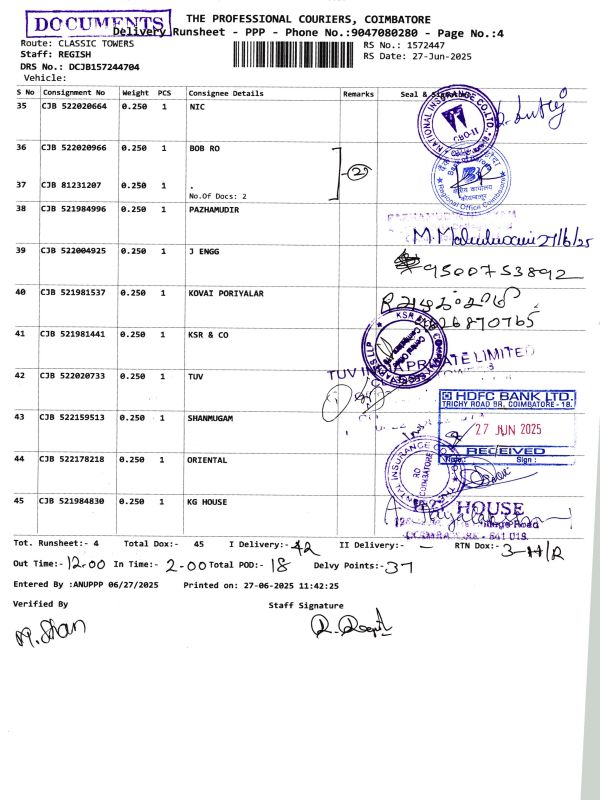 DOCUMENTS
THE PROFESSIONAL COURIERS, COIMBATORE
Delivery Runsheet - PPP - Phone No.:9047080280 - Page No.:4
Route: CLASSIC TOWERS
RS No.: 1572447
Staff: REGISH
RS Date: 27-Jun-2025
DRS No.: DCJB157244704
Vehicle:
S No Consignment No Weight PCS Consignee Details Remarks Seal & Signature
35 CJB 522020664 0.250 1 NIC
NATIONAL INSURANCE CO.LTD.
CBO-II
36 CJB 522020966 0.250 1 BOB RO
2
Bank of Baroda
Regional Office Coimbatore
37 CJB 81231207 0.250 1 .
No.Of Docs: 2
38 CJB 521984996 0.250 1 PAZHAMUDIR
27/6/25
39 CJB 522004925 0.250 1 J ENGG
9500753892
40 CJB 521981537 0.250 1 KOVAI PORIYALAR
26870765
41 CJB 521981441 0.250 1 KSR & CO
KSR & CO
LLP
42 CJB 522020733 0.250 1 TUV
TUV INDIA PRIVATE LIMITED
1
43 CJB 522159513 0.250 1 SHANMUGAM
HDFC BANK LTD.
TRICHY ROAD BR, COIMBATORE - 18.
27 JUN 2025
RECEIVED
Name: Sign :
44 CJB 522178218 0.250 1 ORIENTAL
ORIENTAL INSURANCE
RO
COIMBATORE
45 CJB 521984830 0.250 1 KG HOUSE
HOUSE
Road
641 018.
Tot. Runsheet:- 4 Total Dox:- 45 I Delivery:- 42 II Delivery:- — RTN Dox:- 3-H/R
Out Time:- 12.00 In Time:- 2-00 Total POD:- 18 Delvy Points:- 37
Entered By :ANUPPP 06/27/2025 Printed on: 27-06-2025 11:42:25
Verified By Staff Signature
M. Shan